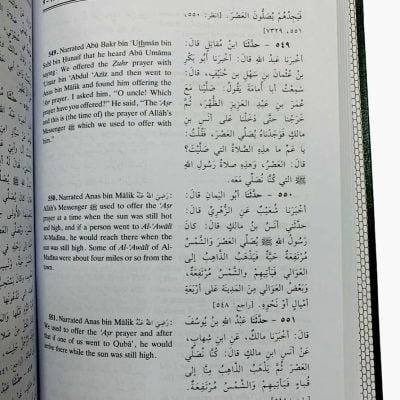 549. Narrated Abū Bakr bin 'Uthmān bin
Sahl bin Ḥunaif that he heard Abū Umāma
saying: We offered the Zuhr prayer with
'Umar bin 'Abdul 'Azīz and then went to
Anas bin Mālik and found him offering the
'Aṣr prayer. I asked him, "O uncle! Which
prayer have you offered?" He said, "The 'Aṣr
and this is (the time of) the prayer of Allāh's
Messenger ﷺ which we used to offer with
him."
550. Narrated Anas bin Mālik رَضِيَ اللهُ عَنْهُ:
Allāh's Messenger ﷺ used to offer the 'Aṣr
prayer at a time when the sun was still hot
and high, and if a person went to Al-'Awālī
of Al-Madīna, he would reach there when the
sun was still high. Some of Al-'Awālī of Al-
Madīna were about four miles or so from the
town.
551. Narrated Anas bin Mālik رَضِيَ اللهُ عَنْهُ:
We used to offer the 'Aṣr prayer and after
that if one of us went to Qubā', he would
arrive there while the sun was still high.
فَيَجِدُهُمْ يُصَلُّونَ العَصْرَ. [انظر: ٥٥٠،
٥٥١، ٧٣٢٩]
٥٤٩ - حدَّثنا ابنُ مُقاتِلٍ قَالَ:
أَخْبَرَنَا عَبْدُ اللهِ قَالَ: أَخْبَرَنَا أَبُو بَكْرِ
بْنُ عُثْمَانَ بْنِ سَهْلِ بْنِ حُنَيْفٍ، قَالَ:
سَمِعْتُ أَبَا أُمَامَةَ يَقُولُ: صَلَّيْنَا مَعَ
عُمَرَ بْنِ عَبْدِ العَزِيزِ الظُّهْرَ، ثُمَّ
خَرَجْنَا حَتَّى دَخَلْنَا عَلَى أَنَسِ بْنِ
مَالِكٍ فَوَجَدْنَاهُ يُصَلِّي العَصْرَ، فَقُلْتُ:
يَا عَمِّ مَا هَذِهِ الصَّلَاةُ الَّتِي صَلَّيْتَ؟
قَالَ: العَصْرَ، وَهَذِهِ صَلَاةُ رَسُولِ اللهِ
ﷺ الَّتِي كُنَّا نُصَلِّي مَعَهُ.
٥٥٠ - حدَّثنا أَبُو اليَمَانِ قَالَ:
أَخْبَرَنَا شُعَيْبٌ عَنِ الزُّهْرِيِّ قَالَ:
حَدَّثَنِي أَنَسُ بْنُ مَالِكٍ قَالَ: كَانَ
رَسُولُ اللهِ ﷺ يُصَلِّي العَصْرَ وَالشَّمْسُ
مُرْتَفِعَةٌ حَيَّةٌ فَيَذْهَبُ الذَّاهِبُ إِلَى
العَوَالِي فَيَأْتِيهِمْ وَالشَّمْسُ مُرْتَفِعَةٌ،
وَبَعْضُ العَوَالِي مِنَ المَدِينَةِ عَلَى أَرْبَعَةِ
أَمْيَالٍ أَوْ نَحْوِهِ. [راجع: ٥٤٨]
٥٥١ - حدَّثنا عَبْدُ اللهِ بْنُ يُوسُفَ
قَالَ: أَخْبَرَنَا مَالِكٌ، عَنِ ابْنِ شِهَابٍ،
عَنْ أَنَسِ بْنِ مَالِكٍ قَالَ: كُنَّا نُصَلِّي
العَصْرَ ثُمَّ يَذْهَبُ الذَّاهِبُ مِنَّا إِلَى
قُبَاءٍ فَيَأْتِيهِمْ وَالشَّمْسُ مُرْتَفِعَةٌ.